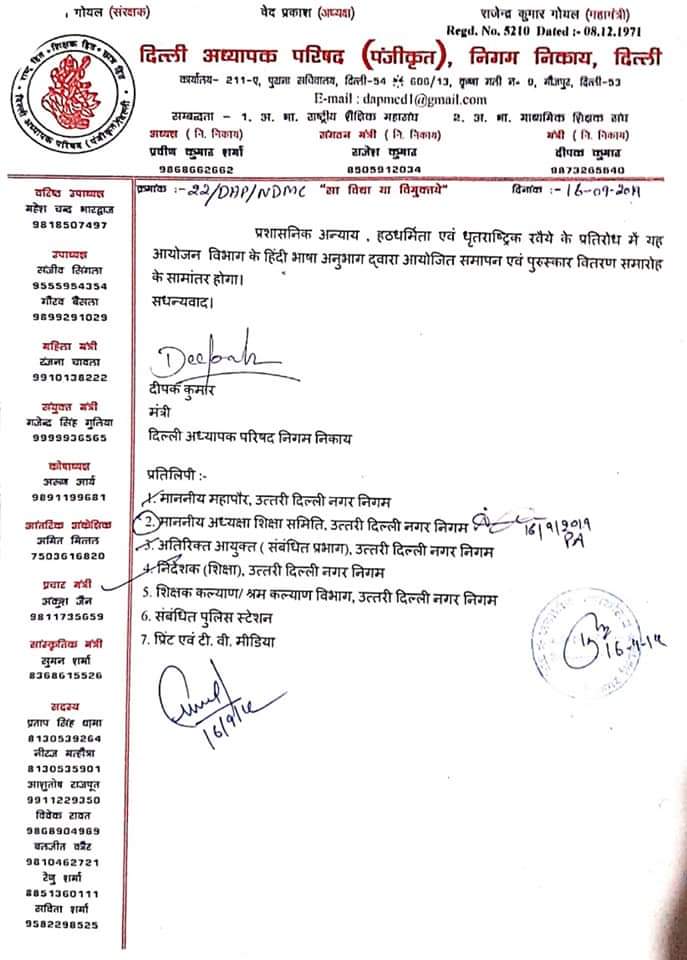 गोयल (संरक्षक) वेद प्रकाश (अध्यक्ष) राजेन्द्र कुमार गोयल (महामंत्री)
Regd. No. 5210 Dated :- 08.12.1971
दिल्ली अध्यापक परिषद (पंजीकृत), निगम निकाय, दिल्ली
कार्यालय- 211-ए, पुराना सचिवालय, दिल्ली-54 606/13, कृष्णा गली न० 9, मौजपुर, दिल्ली-53
E-mail : dapmcd1@gmail.com
सम्बद्धता - 1. अ. भा. राष्ट्रीय शैक्षिक महासंघ 2. अ. भा. माध्यमिक शिक्षक संघ
अध्यक्ष (नि. निकाय) संगठन मंत्री (नि. निकाय) मंत्री (नि. निकाय)
प्रवीण कुमार शर्मा राजेश कुमार दीपक कुमार
9868662662 8505912034 9873265840
क्रमांक :- 22/DAP/NDMC "सा विद्या या विमुक्तये" दिनांक :- 16-09-2019
वरिष्ठ उपाध्यक्ष
महेश चन्द भारद्वाज
9818507497
उपाध्यक्ष
संजीव सिंगला
9555954354
गौरव बैंसला
9899291029
महिला मंत्री
रंजना चावला
9910138222
संयुक्त मंत्री
गजेन्द्र सिंह गुलिया
9999936565
कोषाध्यक्ष
अरुण आर्य
9891199681
आंतरिक अंकेक्षक
अमित मित्तल
7503616820
प्रचार मंत्री
अंकुश जैन
9811735659
सांस्कृतिक मंत्री
सुमन शर्मा
8368615526
सदस्य
प्रताप सिंह धामा
8130539264
नीरज मल्होत्रा
8130535901
आशुतोष राजपूत
9911229350
विवेक रावत
9868904969
बलजीत
9810462721
रेणु शर्मा
8851360111
सविता शर्मा
9582298525
प्रशासनिक अन्याय , हठधर्मिता एवं धृतराष्ट्रिक रवैये के प्रतिरोध में यह
आयोजन विभाग के हिंदी भाषा अनुभाग द्वारा आयोजित समापन एवं पुरुस्कार वितरण समारोह
के सामांतर होगा।
सधन्यवाद।
Deepak
दीपक कुमार
मंत्री
दिल्ली अध्यापक परिषद निगम निकाय
प्रतिलिपी :-
1. माननीय महापौर, उत्तरी दिल्ली नगर निगम
2. माननीय अध्यक्षा शिक्षा समिति, उत्तरी दिल्ली नगर निगम 16/9/2019
PA
3. अतिरिक्त आयुक्त ( संबंधित प्रभाग), उत्तरी दिल्ली नगर निगम
4. निर्देशक (शिक्षा), उत्तरी दिल्ली नगर निगम
5. शिक्षक कल्याण/ श्रम कल्याण विभाग, उत्तरी दिल्ली नगर निगम
6. संबंधित पुलिस स्टेशन
7. प्रिंट एवं टी. वी. मीडिया